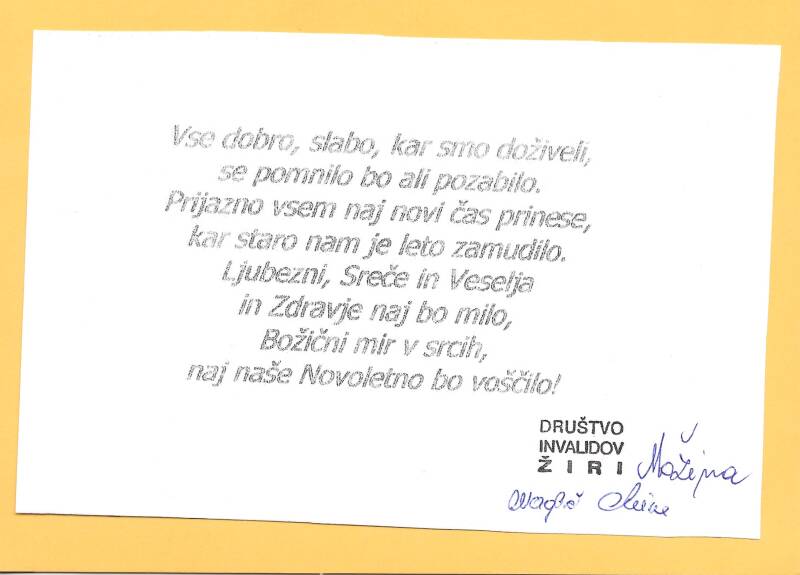 Vse dobro, slabo, kar smo doživeli,
se pomnilo bo ali pozabilo.
Prijazno vsem naj novi čas prinese,
kar staro nam je leto zamudilo.
Ljubezni, Sreče in Veselja
in Zdravje naj bo milo,
Božični mir v srcih,
naj naše Novoletno bo voščilo!
DRUŠTVO
INVALIDOV
ŽIRI